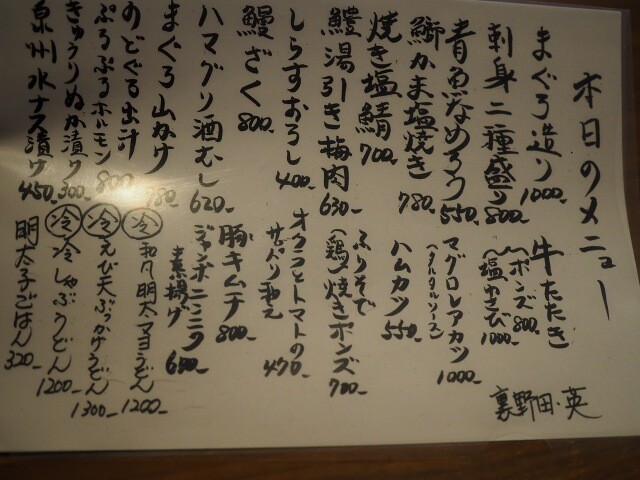 本日のメニュー
まぐろ造り 1000-
刺身二種盛り 800-
青魚なめろう 550-
鰤かま塩焼き 780-
焼き塩鯖 700-
鱧湯引き梅肉 630-
しらすおろし 400-
鰻ざく 800-
ハマグリ酒むし 620-
まぐろ山かけ 780-
のどぐろ出汁
ぷるぷるホルモン 800-
きゅうりぬか漬け 300-
泉州水ナス漬け 450-
牛たたき
(ポンズ 800-
(塩わさび 1000-
マグロレアカツ
(タルタルソース) 1000-
ハムカツ 550-
ふりそで
(鶏)焼きポンズ 700-
オクラとトマトの
サッパリ和え 470-
豚キムチ 800-
ジャンボニンニク
素揚げ 650-
冷 和風明太マヨうどん 1200-
冷 えび天ぶっかけうどん 1300-
冷 冷しゃぶうどん 1200-
明太子ごはん 320-
裏野田・英